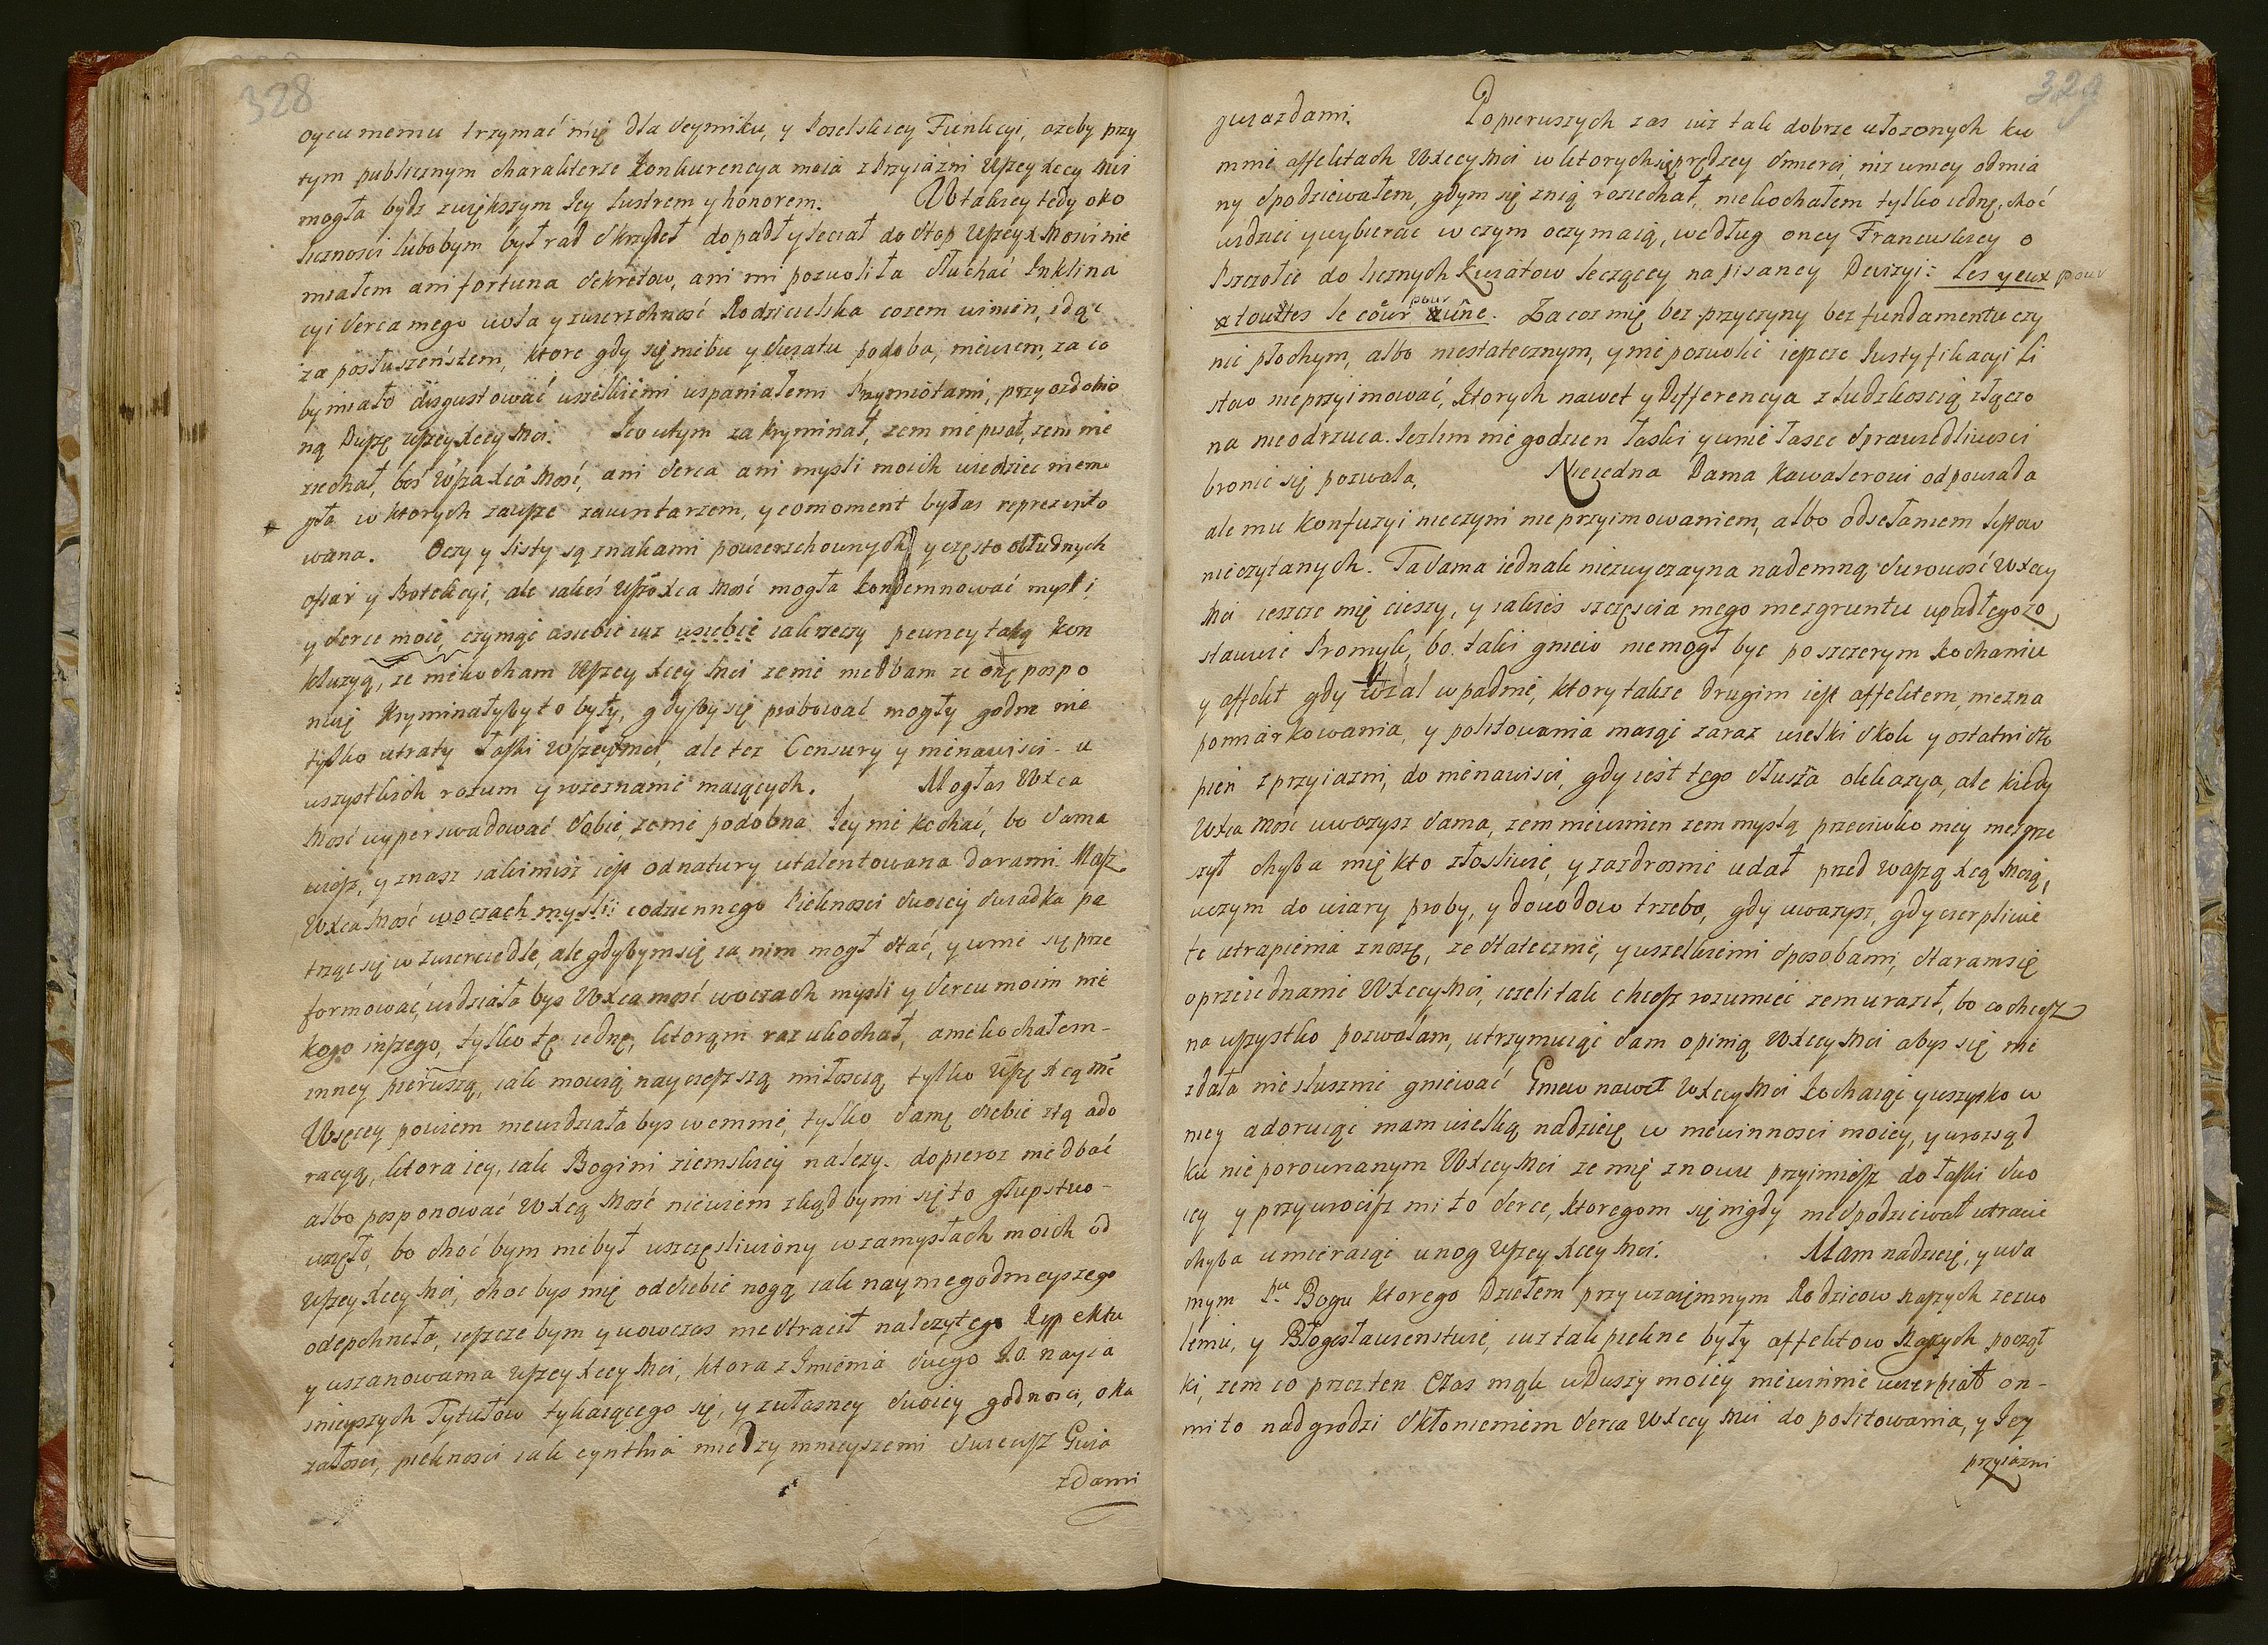 328
oycu memu trzymać mię dla Seymiku, y Poselskiey Funkcyi, ażeby przy
tym publicznym charakterze konkurencya moia z Przyiaźni Wszey Xcey Mci
mogła bydz zwiększym Jey lustrem y honorem. W takiey tedy oko
liczności lubobym był rad Skrzydeł dopadł y leciał do Stop Wszey X Mości nie
miałem ani fortuna Sekretow, ani mi pozwoliła Słuchać Inklina
cyi Serca mego wola y zwierzchność Rodzicielska cozem winien, idąc
za posłuszeństem, ktore gdy się niebu y Swiatu podoba, niewiem, za co
by miało disgustować wszelkiemi wspaniałemi Przymiotami, przyozdobio
ną Duszę Wszey Xcey Mci. Jco wtym za kryminał, żem nie pisał, żem nie
ziechał, boś Wsza Xca Mość, ani Serca ani myśli moich wiedziec niemo
gła w ktorych zawsze zawintarzem, y comoment byłas reprezento
wana. Oczy y listy są znakami powierzchownych y często obłudnych
ofiar y Protekcyi, ale iakeś Wsza Xca Mość mogła kondemnować myśli
y Serce moie, czyniąc asiebie iuż usiebie iak rzeczy pewney taką kon
kluzyą, że niekocham Wszey Xcey Mci że nie niedbam że onę pospo
nuię Kryminałyby to były, gdyby się probować mogły godne nie
tylko utraty łaski Wszey Mci, ale tez Censury y nienawiści u
wszystkich rozum y rozeznanie maiących. Mogłas WXca
Mość wyperswadować Sobie, żemie podobna Jey nie kochać, bo Sama
wiesz, y znasz iakimisz iest od natury utalentowana darami. Masz
WXca Mość woczach myśli codziennego Piekności Swoiey Swiadka pa
trząc się w Zwierciedle, ale gdybym się za nim mogł stać, y wnie się prze
formować, widziała bys WXca mość woczach myśli y Sercu moim nie
kogo inszego, tylko tę iednę, ktorąm raz ukochał, a niekochałem
inney pierwszą, iak mowią nayciepszą miłoscią tylko Wszę Xcą Mć
Więcey powiem niewidziała bys wemnie, tylko Samę Siebie ztą ado
racyą, ktora iey, iak Bogini ziemskiey należy. dopieroz niedbać
albo posponować WXcą Mość niewiem zkąd bymi się to głupstwo
wzięło, bo choć bym niebył uszczęsliwiony w zamysłach moich od
Wszey Xcey Mci, choc bys mię odSiebie nogą iak nayniegodnieyszego
odepchneła, ieszcze bym y wowczas nieStracił należytego Respektu
y uszanowania Wszey Xcey Mci, ktora z Imienia Swego J.O. nayia
śnieyszych Tytułow tykaiącego się, y zwłasney Swoiey godności, oka
załości, piekności iak cynthia między mnieyszemi Swiecisz Gwia
zdami
329
gwiazdami. Po pierwszych zas iuż tak dobrze ułozonych ku
mnie affektach WXcey Mci w ktorych się prędzey Smierci, niz wniey odmia
ny Spodziewałem, gdym się znią rosiechał, niekochałem tylko iednę, choć
widzieć y wybierać w czym oczy maią, według oney Francuskiey o
Pszczołce do licznych Kwiatow leczącey napisaney Dewizyi: Les yeux pour
a touttes le coeur pour une. Za coz mię bez przyczyny bez fundamentu czy
nić płochym, albo niestatecznym, y nie pozwolić ieszcze Justyfikacyi li
stow nieprzyimować, ktorych nawet y Differencya z ludzkoscią złączo
na nie odrzuca. Jezlim nie godzien łaski y wnie łasce Sprawiedliwości
bronić się pozwala. Nieiedna Dama Kawalerowi odpowiada
ale mu konfuzyi nieczyni nie przyimowaniem, albo odsełaniem listow
nieczytanych. Ta Sama iednak niezwyczayna nademną Surowość WXcey
Mci ieszcze mię cieszy, y iakieś szczęscia mego niezgruntu upadłego zo
stawuie Promyk, bo taki gniew niemogł byc po szczerym kochaniu
y affekt gdy wżal wpadnie, ktory także drugim iest affektem niezna
pomiarkowania, y politowania maiąc zaraz wielki Skok y ostatni sto
pień z przyiazni, do nienawiści, gdy iest tego Słuszna okkazya, ale kiedy
WXca Mość uwazysz Sama, żem niewinien żem myslą przeciwko niey niezgrze
szył chyba mię kto złośliwie, y zazdrosnie udał przed waszą Xcą Mcią,
wczym do wiary proby, y dowodow trzeba, gdy uwazysz, gdy cierpliwie
te utrapienia znoszę, że statecznie, y wszelkiemi sposobami, staram się
o przeiednanie WXcey Mci, iezeli tak chcesz rozumieć żem uraził, bo co chcesz
na wszystko pozwalam, utrzymuiąc Sam opinią WXcey Mci abys się nie
zdała nie słusznie gniewać Gniew nawet WXcey Mci kochaiąc y wszysko w
niey adoruiąc mam wielką nadzieię w niewinności moiey, y w rozsąd
ku nie porownanym WXcey Mci że mię znowu przyimiesz do łaski Swo
iey y przywrocisz mi to Serce, ktoregom się nigdy nieSpodziewał utracić
chyba umieraiąc unog Wszey Xcey Mci. Mam nadzieię, y wSa
mym Pu Bogu ktorego Dziełem przy wzaiemnym Rodzicow naszych zezwo
leniu, y Błogosławieństwie, iuż tak piekne były affektow naszych począt
ki, żem co przez ten Czas mąk w Duszy moiey niewinnie ucierpiał on
mi to nadgrodzi Skłonieniem Serca WXcey Mci do politowania, y Jey
przyiazni